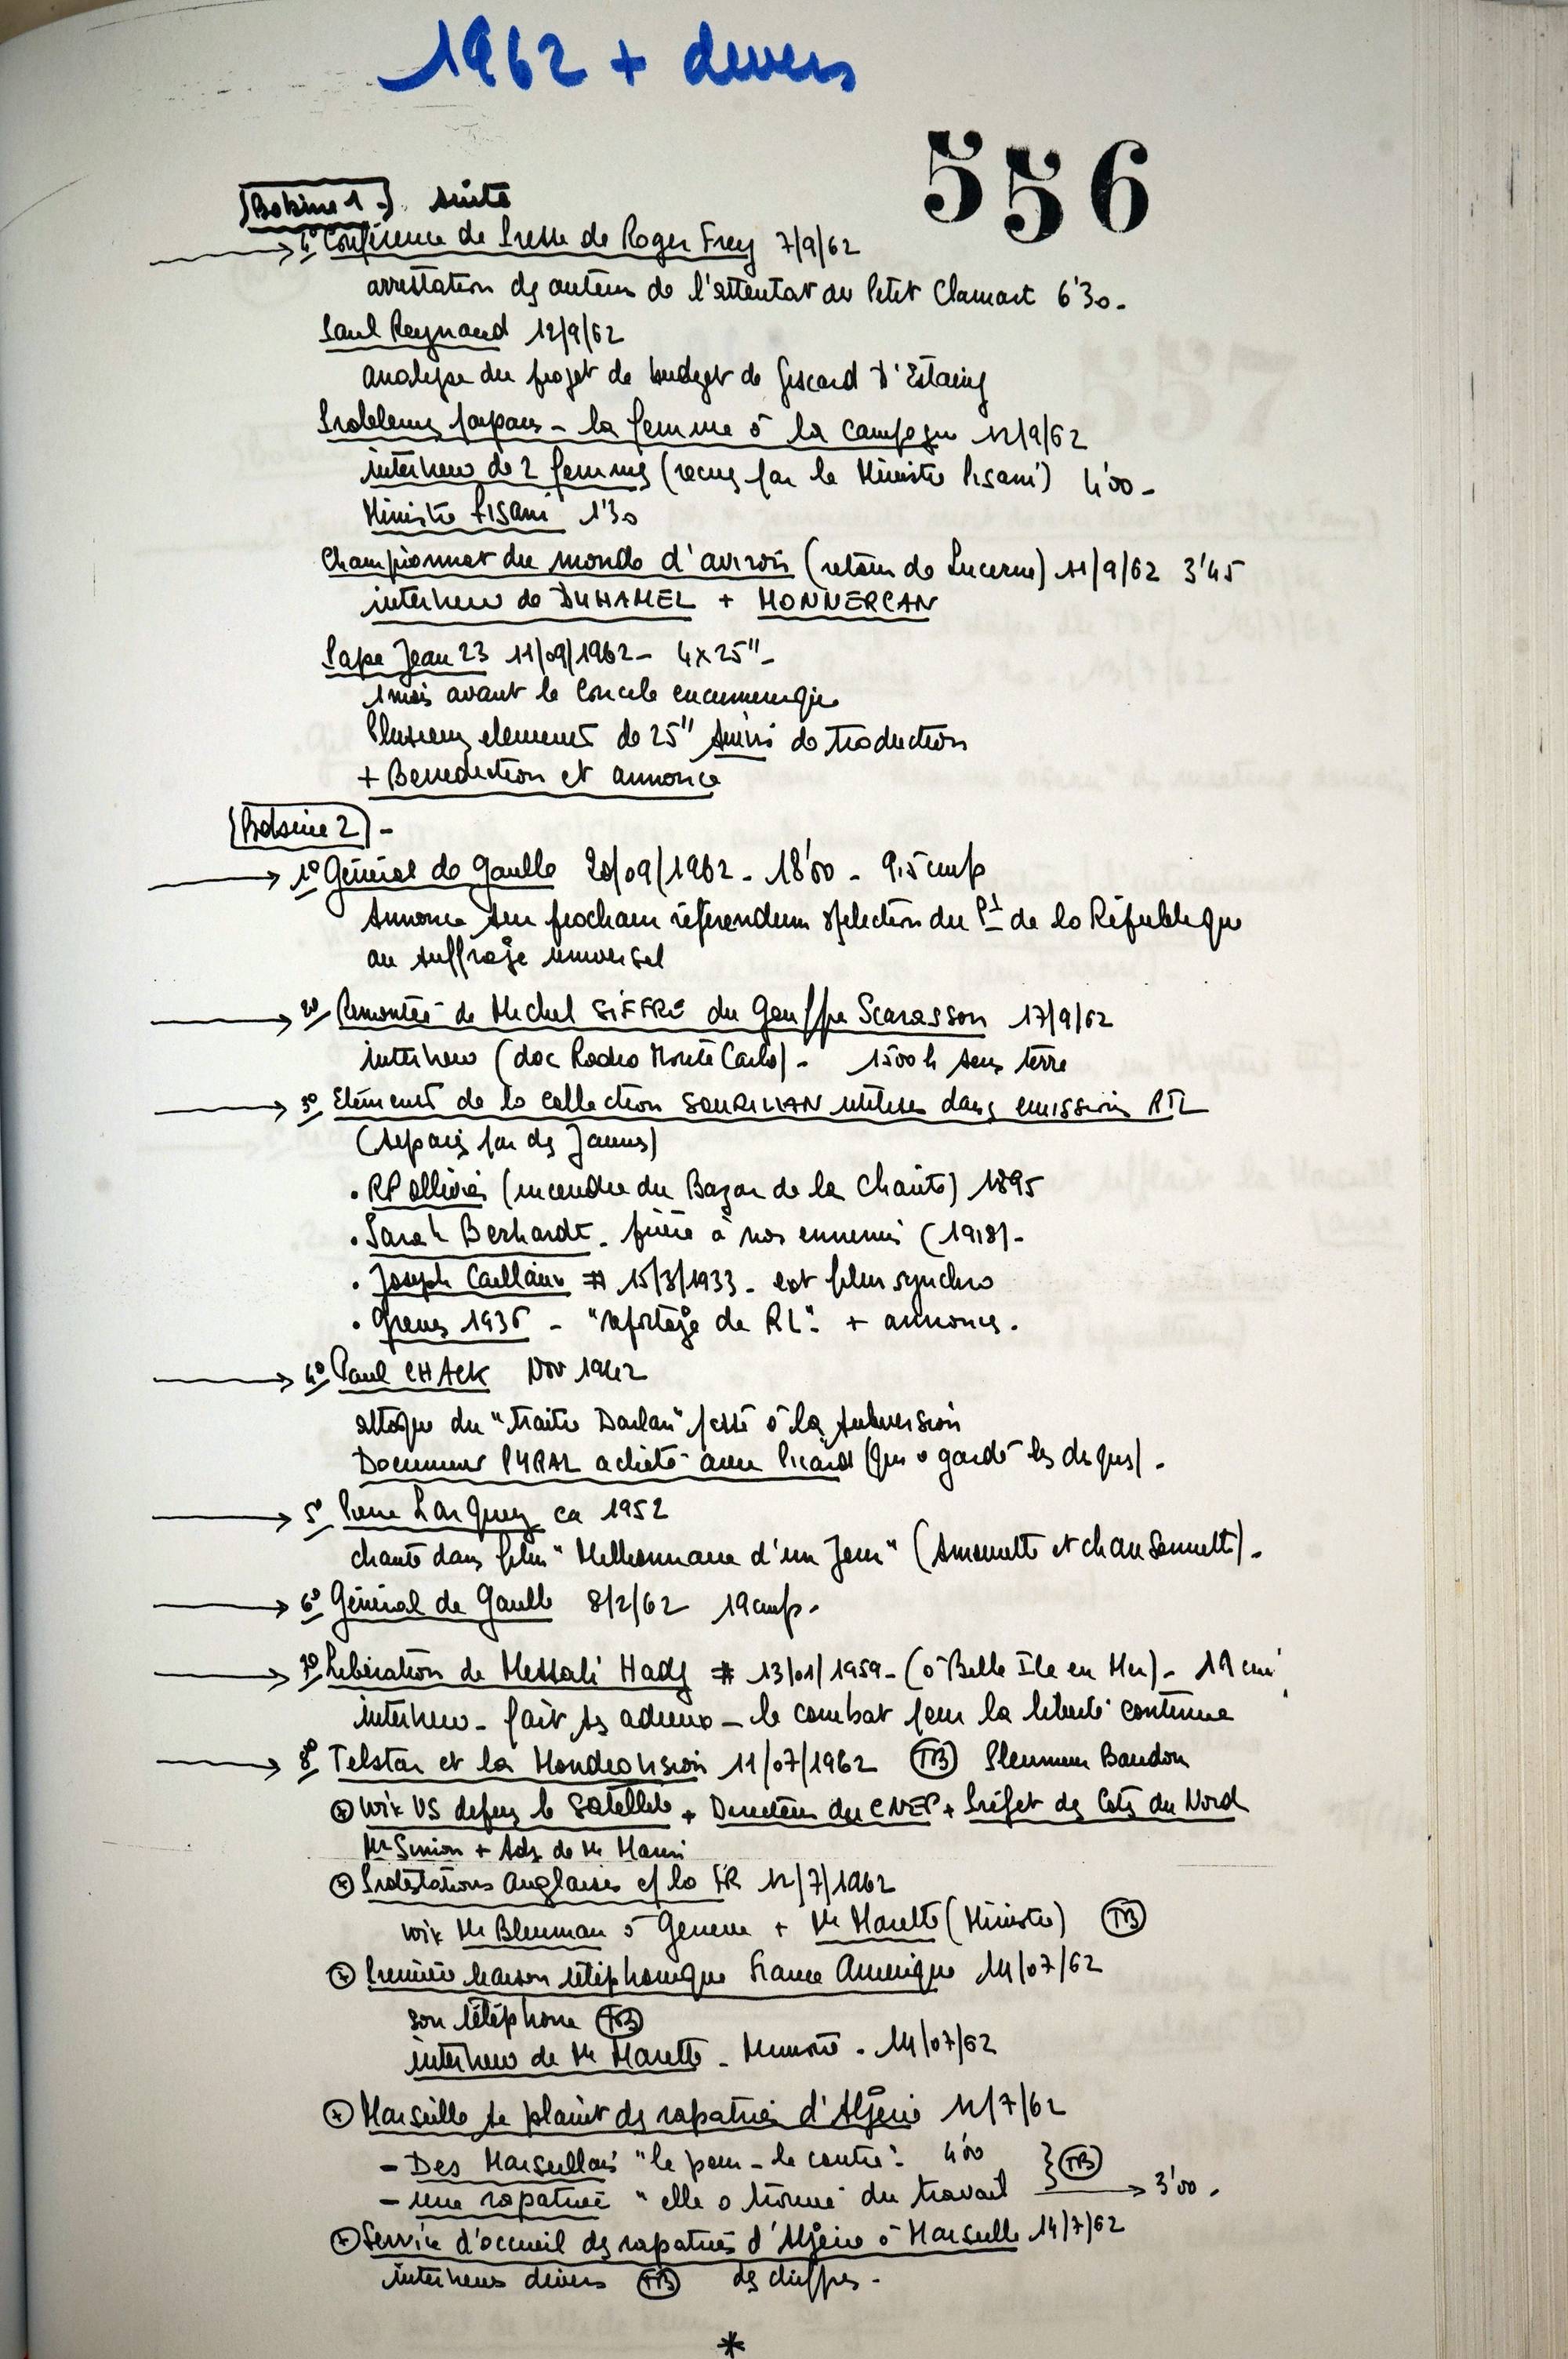 1962 + divers
556
Bobine 1 - suite
4° Conférence de Presse de Roger Frey 7/9/62
arrestation des auteurs de l'attentat du Petit Clamart 6'30 -
Paul Reynaud 12/9/62
analyse du projet de budget de Giscard D'Estaing
Problemes paysans - la femme à la campagne 12/9/62
interview de 2 femmes (reçues par le Ministre Pisani) 4'00 -
Ministre Pisani 1'30
Championnat du monde d'aviron (retour de Lucerne) 11/9/62 3'45
interview de DUHAMEL + MONNEREAN
Pape Jean 23 11/09/1962 - 4x25" -
1 mois avant le Concile oecumenique
Plusieurs elements de 25" suivis de traduction
+ Benediction et annonce
Bobine 2 -
1° Général de Gaulle 20/09/1962 - 18'00 - 9,5 cm/s
Annonce un prochain référendum s/election du Pt de la République
au suffrage universel
2° Remontée de Michel SIFFRE du Gouffre Scarasson 17/9/62
interview (doc Radio Monte Carlo) - 1500 h sous terre
3° Eléments de la collection SOURILIAN utilises dans emission RTL
(separés par des jaunes)
• RP Ollivier (incendie du Bazar de la Charité) 1895
• Sarah Berhardt - prière à nos ennemis (1918) -
• Joseph Caillaux # 15/3/1933 - ext film synchro
• Greves 1936 - "reportage de RL" + annonces.
4° Paul CHACK Nov 1942
attaque du "traitre Darlan" passé à la subversion
Document PYRAL acheté avec Picard (qui a gardé les disques) -
5° Pierre Larquey ca 1952
chante dans film "Millionnaire d'un Jour" (Amourette et chansonnette) -
6° Général de Gaulle 8/2/62 19 cm/s -
7° Libération de Messali Hadj # 13/01/1959 - (à Belle Ile en Mer) - 19 cm
interview - fait ses adieux - le combat pour la liberté continue
8° Telstar et la Mondiovision 11/07/1962 TB Pleumeur Bodou
* voix US depuis le Satellite + Directeur du CNET + Préfet des Cotes du Nord
Mr Simion + Adj. de Mr
* Protestations Anglaises c/ la FR 12/7/1962
voix Mr à Geneve + Mr Marette (Ministre) TB
* Première liaison téléphonique France Amerique 14/07/62
son téléphone TB
interview de Mr Marette - Ministre - 14/07/62
* Marseille se plaint des rapatriés d'Algérie 12/7/62
- Des Marseillais "le pour - le contre" 4'00
- une rapatriée "elle a trouvé du travail } TB → 3'00.
* Service d'accueil des rapatriés d'Algérie à Marseille 14/7/62
interviews divers TB des chiffres -
*